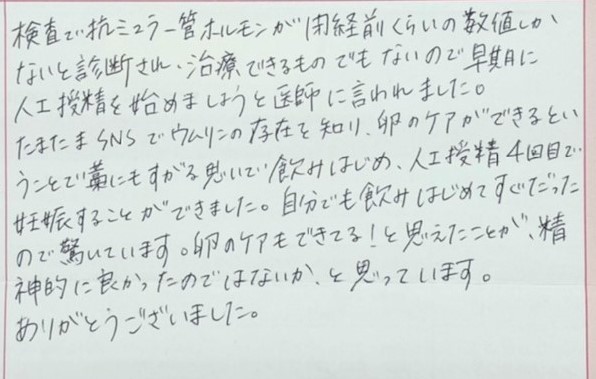 検査で抗ミュラー管ホルモンが閉経前くらいの数値しか
ないと診断され、治療できるものでもないので早期に
人工授精を始めましょうと医師に言われました。
たまたまSNSでウムリンの存在を知り、卵のケアができるとい
うことで藁にもすがる思いで飲みはじめ、人工授精4回目で
妊娠することができました。自分でも飲みはじめてすぐだった
ので驚いています。卵のケアもできてる！と思えたことが、精
神的に良かったのではないか、と思っています。
ありがとうございました。